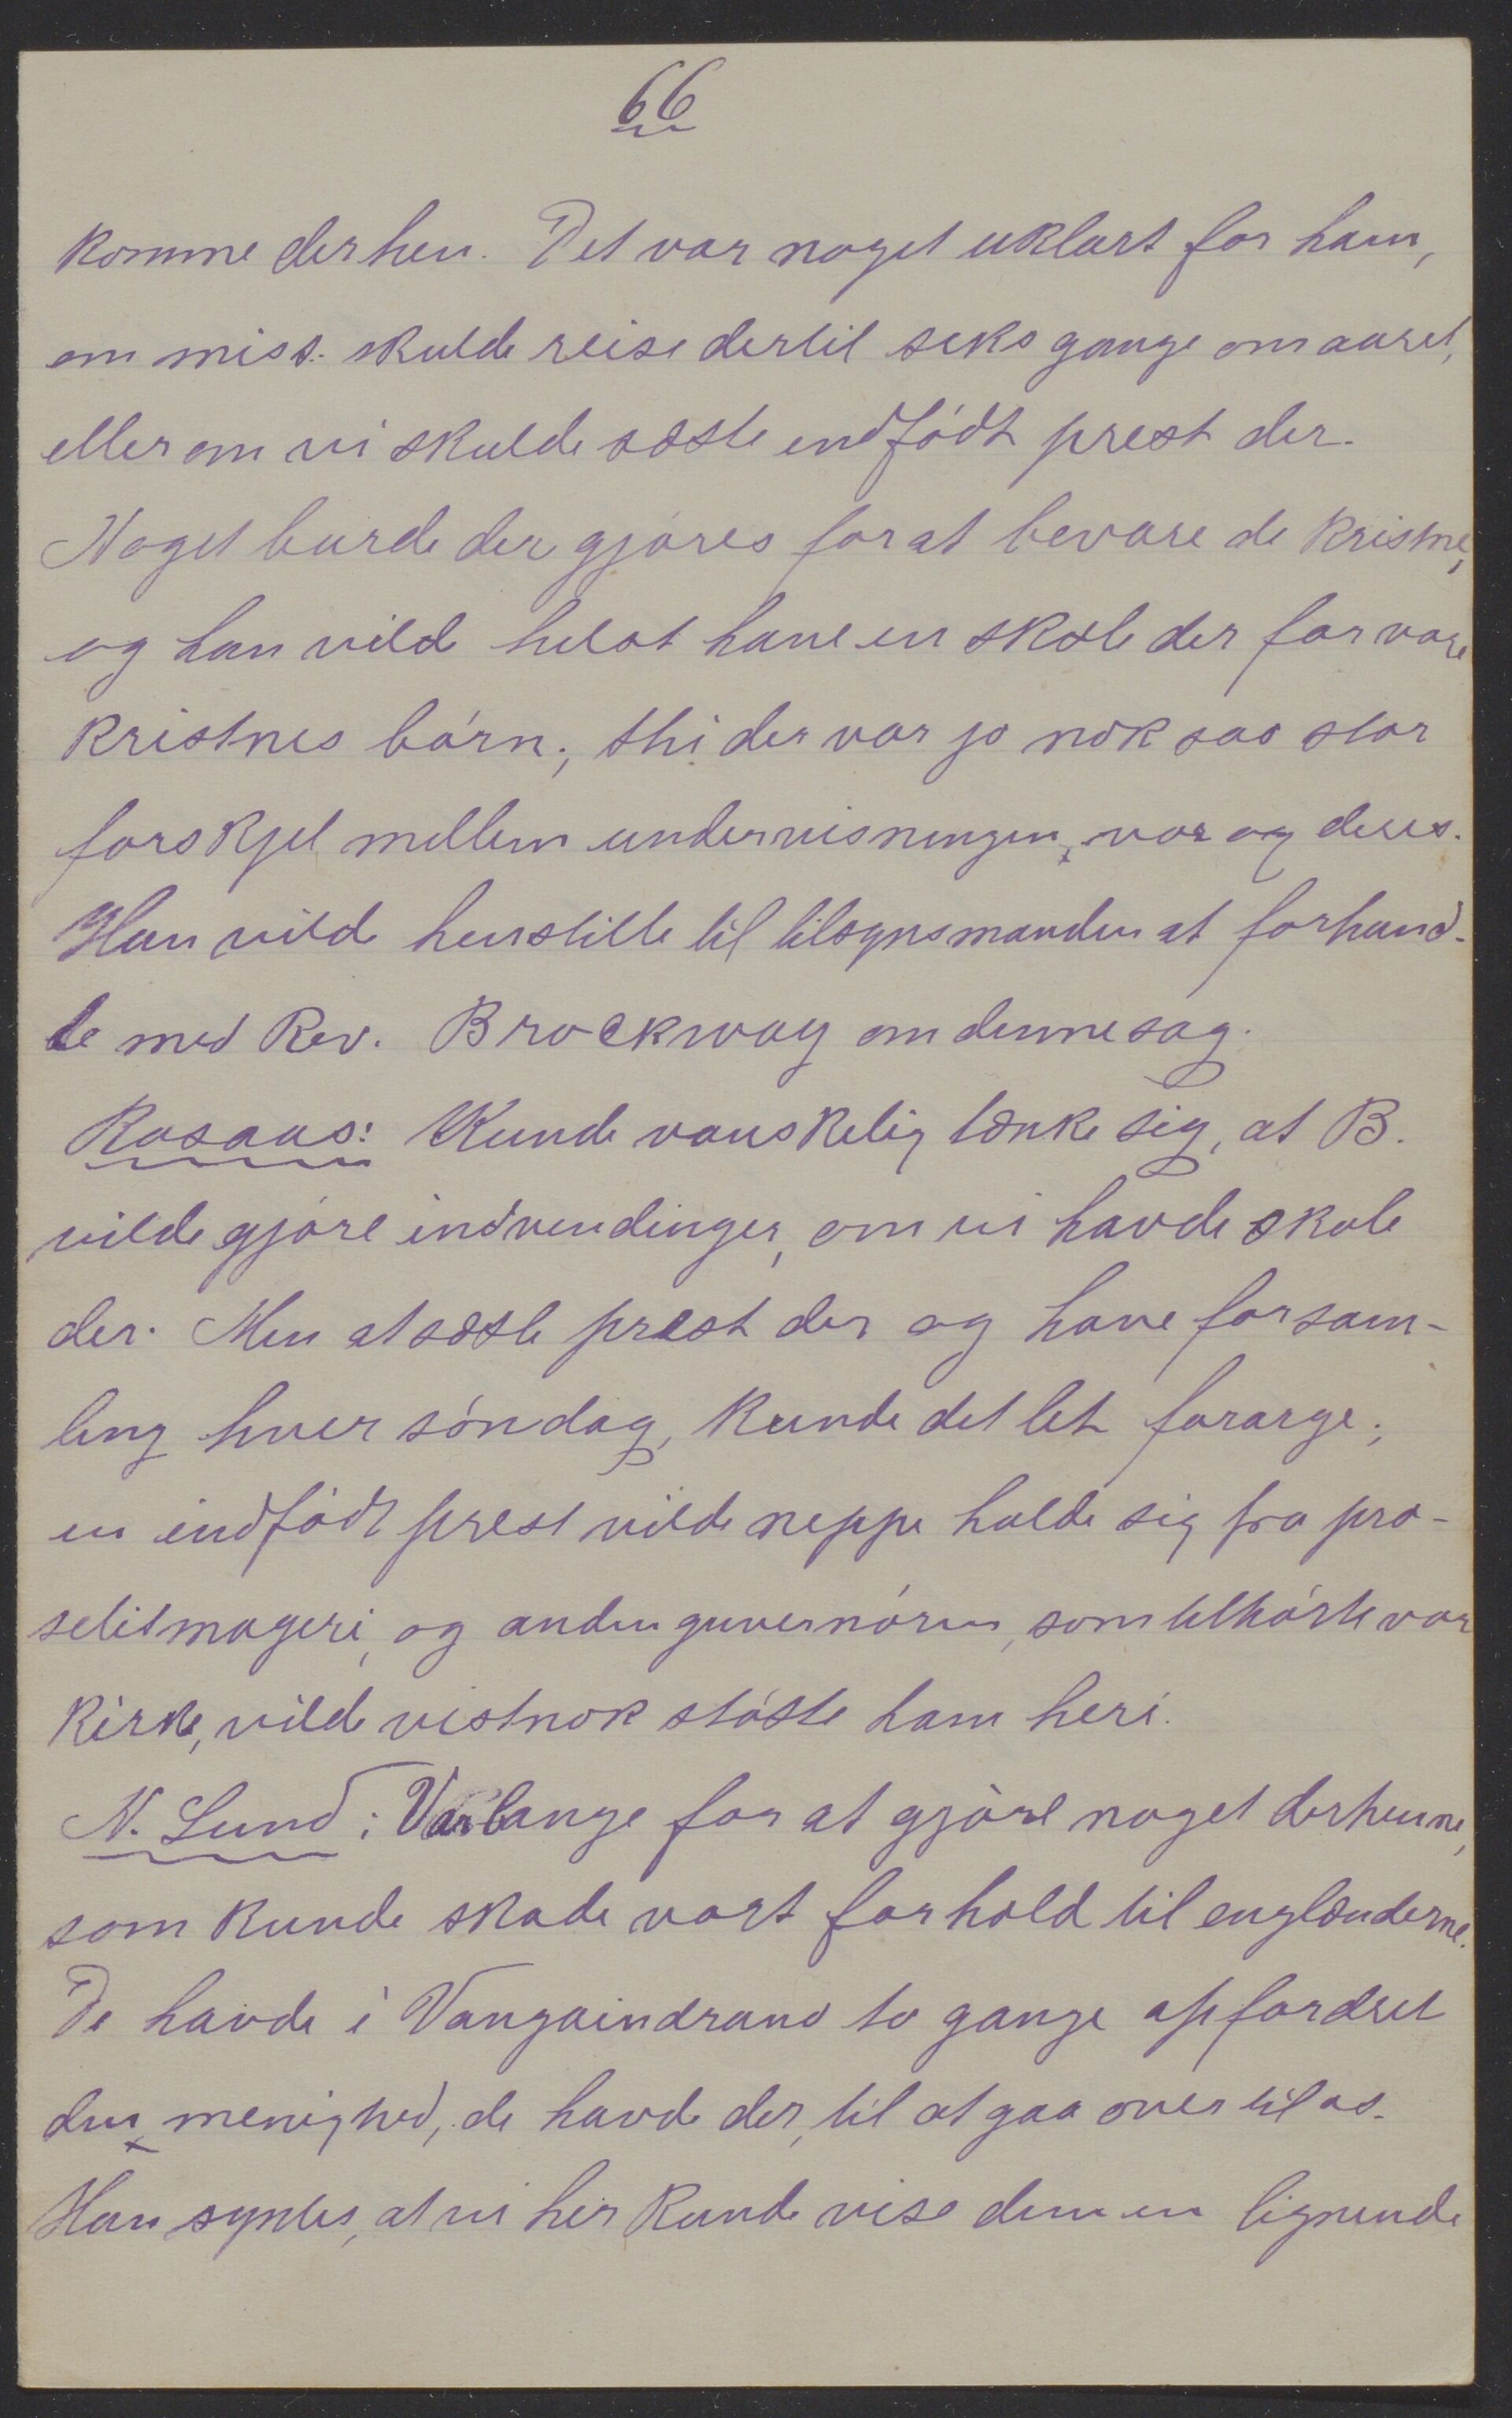 66
komme derhen. Det var noget uklart for ham,
om miss. skulde reise dertil seks gange om aaret,
eller om vi skulde sætte indfødt prest der.
Noget burde der gjøres for at bevare de kristne,
og han vilde helst have en skole der for vore
kristnes børn; thi der var jo nok saa stor
forskjel mellem undervisningen, vor og deres.
Han vilde henstille til tilsynsmanden at forhand-
le med Rev. Brockway om denne sag.
Rosaas: Kunde vanskelig tænke sig, at B.
vilde gjøre indvendinger, om vi havde skole
der. Men at sætte prest der og have forsam-
ling hver søndag, kunde det let forarge;
en indfødt prest vilde neppe holde sig fra pro-
selitmageri, og anden guvernøren, som tilhørte vor
kirke, vilde vistnok støtte ham heri.
N. Lund: Var bange for at gjøre noget derhenne,
som kunde skade vort forhold til englænderne.
De havde i Vangaindrano to gange opfordret
den menighed, de havde der, til at gaa over til os.
Han syntes, at vi her kunde vise dem en lignende